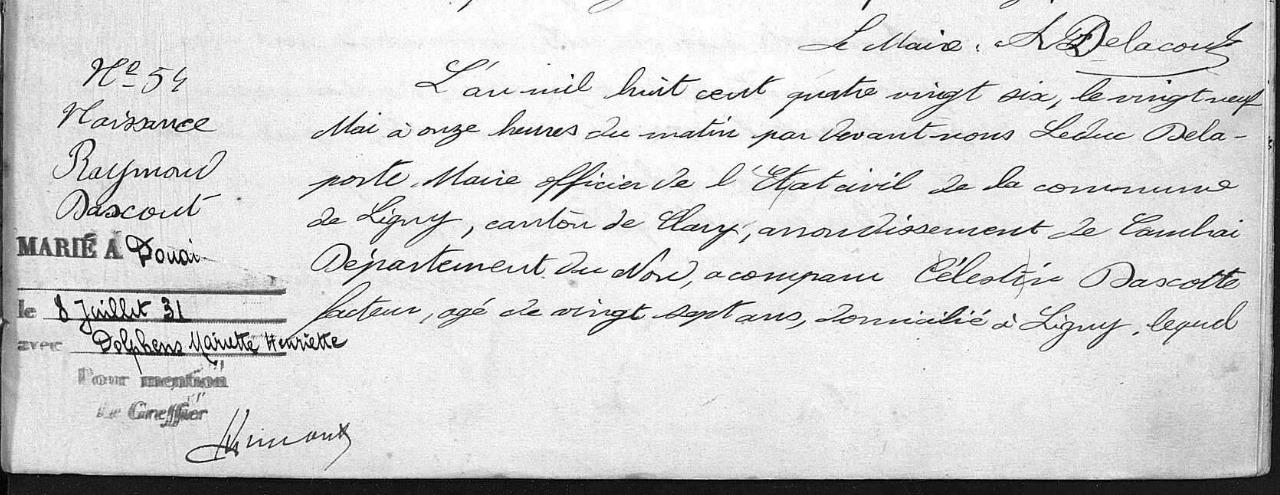 Le Maire, Delacourt
N° 54
Naissance
Raymond
Dascout
MARIÉ À Douai
le 8 Juillet 31
avec Dolphens Mariette Henriette
Pour mention
Le Greffier
L'an mil huit cent quatre vingt six, le vingt neuf
Mai à onze heures du matin par devant nous Leduc Dela-
porte, Maire officier de l'Etat civil de la commune
de Ligny, canton de Clary, arrondissement de Cambrai
Département du Nord, a comparu Célestin Dascotte
facteur, agé de vingt sept ans, domicilié à Ligny, lequel